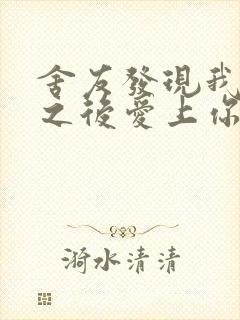 舍友發現我
之後愛上你
漪水清清